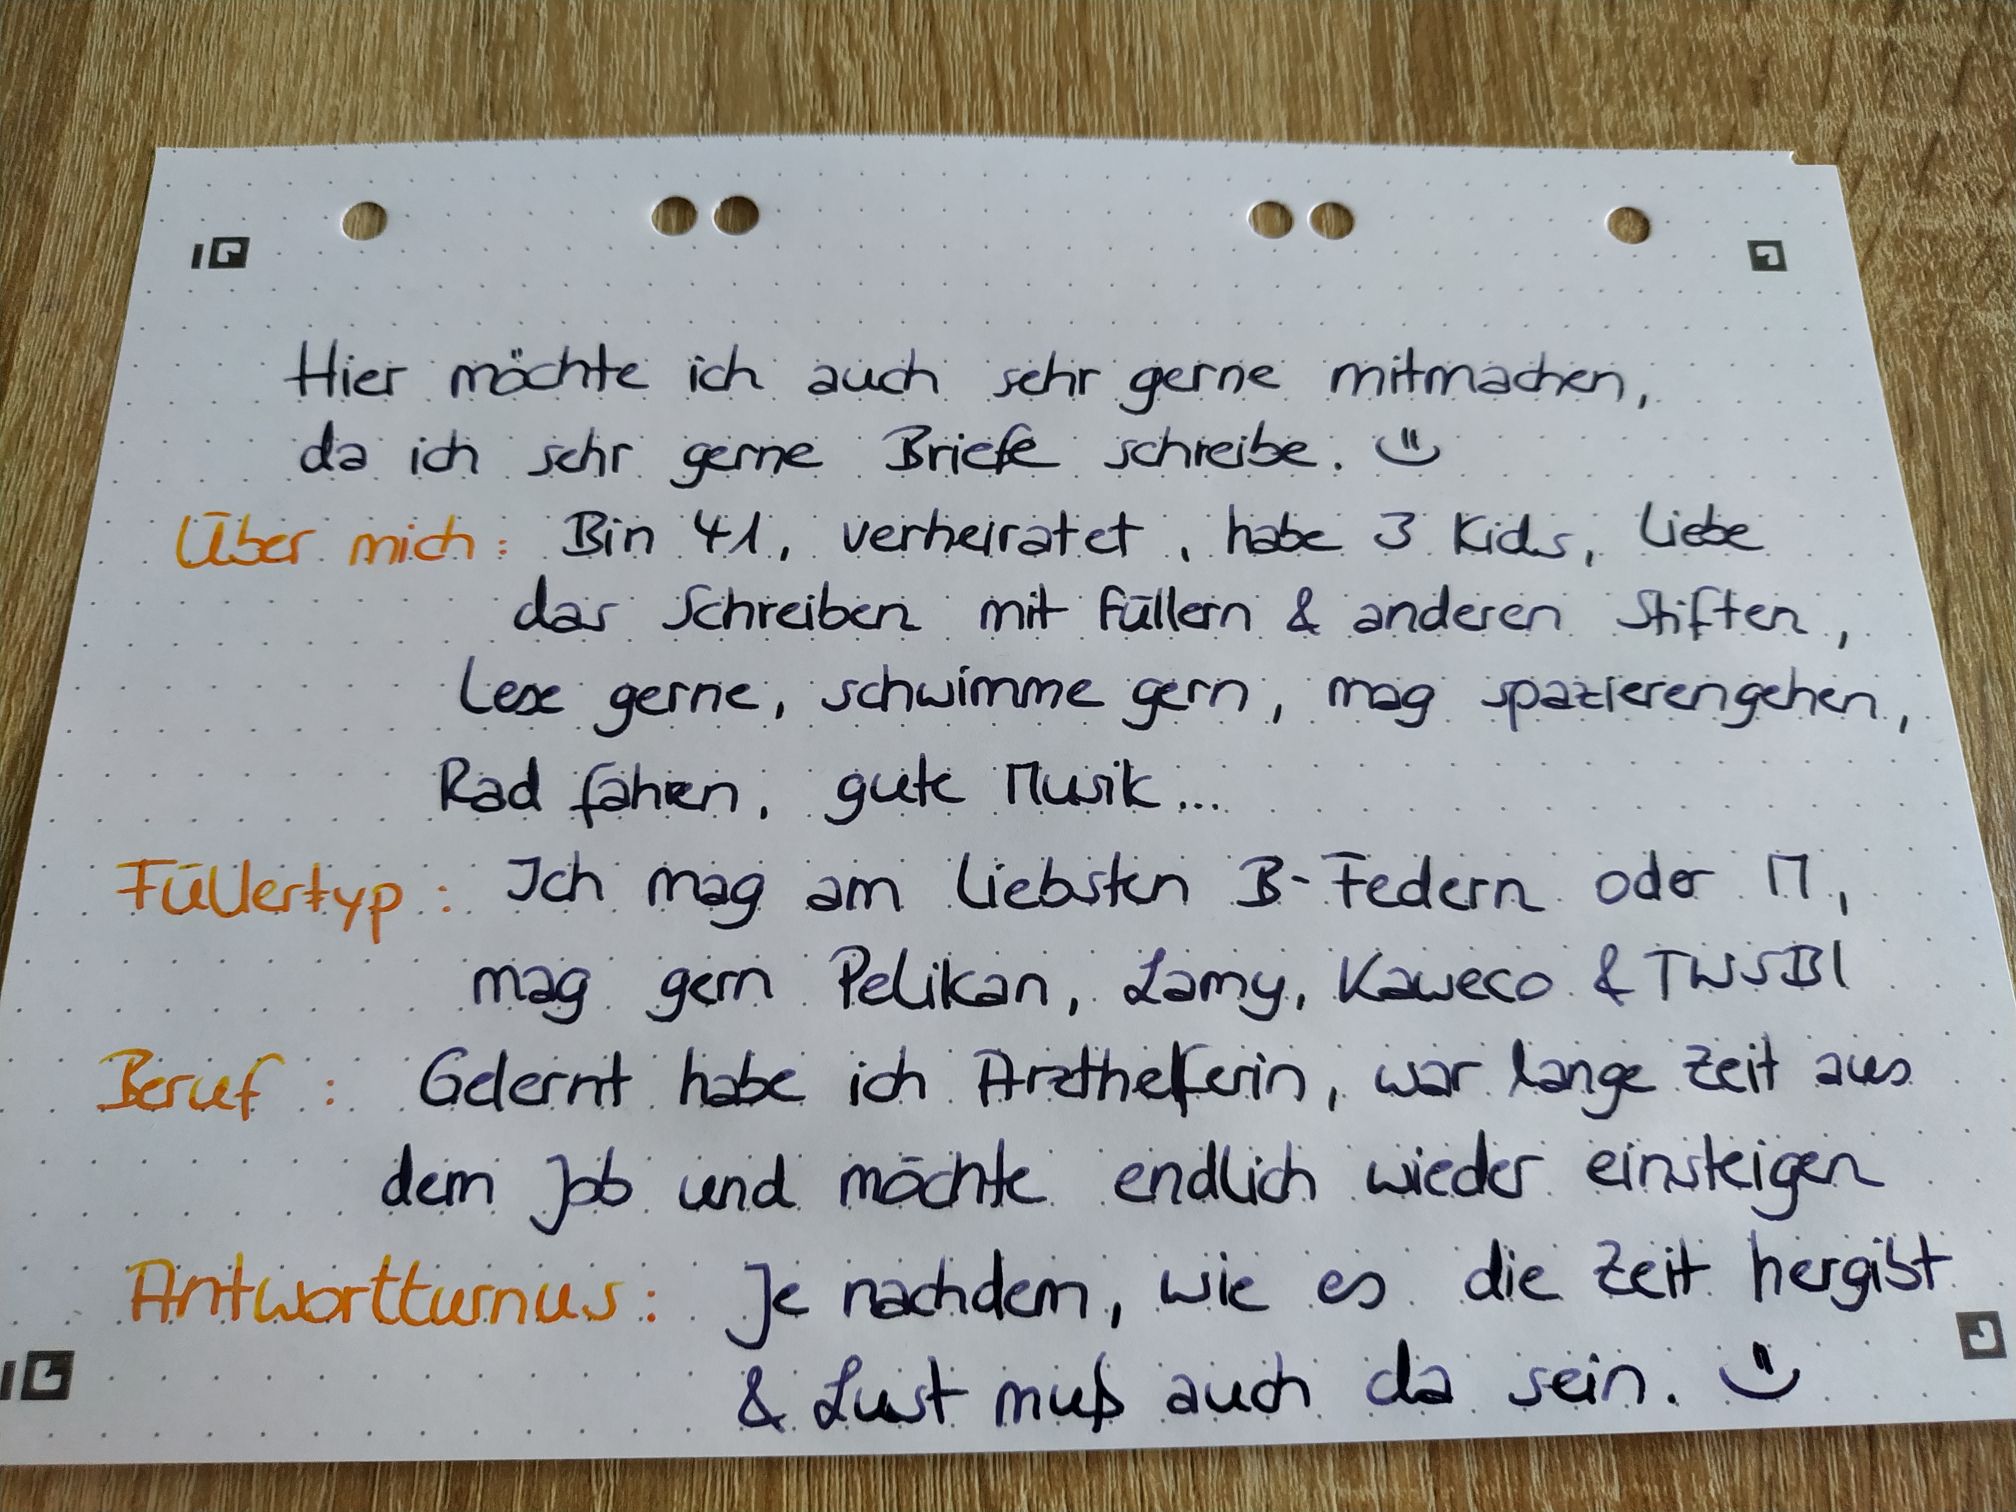 Hier möchte ich auch sehr gerne mitmachen,
da ich sehr gerne Briefe schreibe. 
Über mich: Bin 41, verheiratet, habe 3 Kids, liebe
das Schreiben mit Füllern & anderen Stiften,
lese gerne, schwimme gern, mag spazierengehen,
Rad fahren, gute Musik...
Füllertyp: Ich mag am liebsten B-Federn oder M,
mag gern Pelikan, Lamy, Kaweco & TWSBI
Beruf: Gelernt habe ich Arzthelferin, war lange Zeit aus
dem Job und möchte endlich wieder einsteigen
Antwortturnus: Je nachdem, wie es die Zeit hergibt
& Lust muß auch da sein.